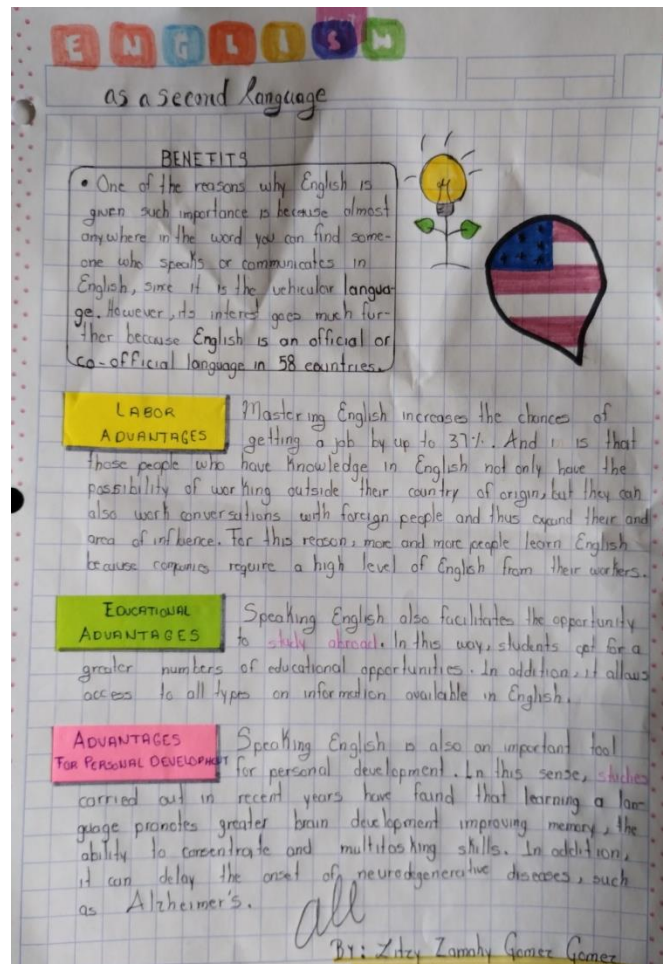 ENGLISH
as a second language
BENEFITS
• One of the reasons why English is
given such importance is because almost
anywhere in the word you can find some-
one who speaks or communicates in
English, since it is the vehicular langua-
ge. However, its interest goes much fur-
ther because English is an official or
co-official language in 58 countries.
LABOR
ADVANTAGES
Mastering English increases the chances of
getting a job by up to 37%. And is that
those people who have knowledge in English not only have the
possibility of working outside their country of origin, but they can
also work conversations with foreign people and thus expand their and
area of influence. For this reason, more and more people learn English
because companies require a high level of English from their workers.
EDUCATIONAL
ADVANTAGES
Speaking English also facilitates the opportunity
to study abroad. In this way, students opt for a
greater numbers of educational opportunities. In addition, it allows
access to all types on information available in English.
ADVANTAGES
FOR PERSONAL DEVELOPMENT
Speaking English is also an important tool
for personal development. In this sense, studies
carried out in recent years have found that learning a lan
guage promotes greater brain development improving memory, the
ability to concentrate and multitasking skills. In addition,
it can delay the onset of neurodigenerative diseases, such
as Alzheimer's.
all
By: Litzy Zamahy Gomez Gomez